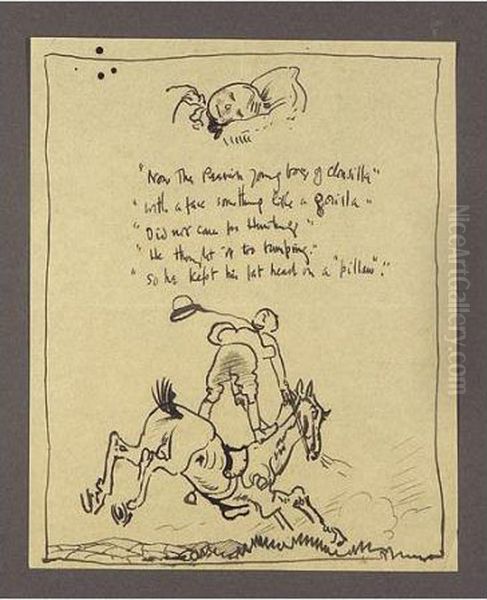 "Now The young boy of Clonsilla"
"with a face something like a gorilla"
"Did not care for Hunting"
"He thought it too bumping."
"So he kept his fat head on a "pillow"."
NiceArtGallery.com